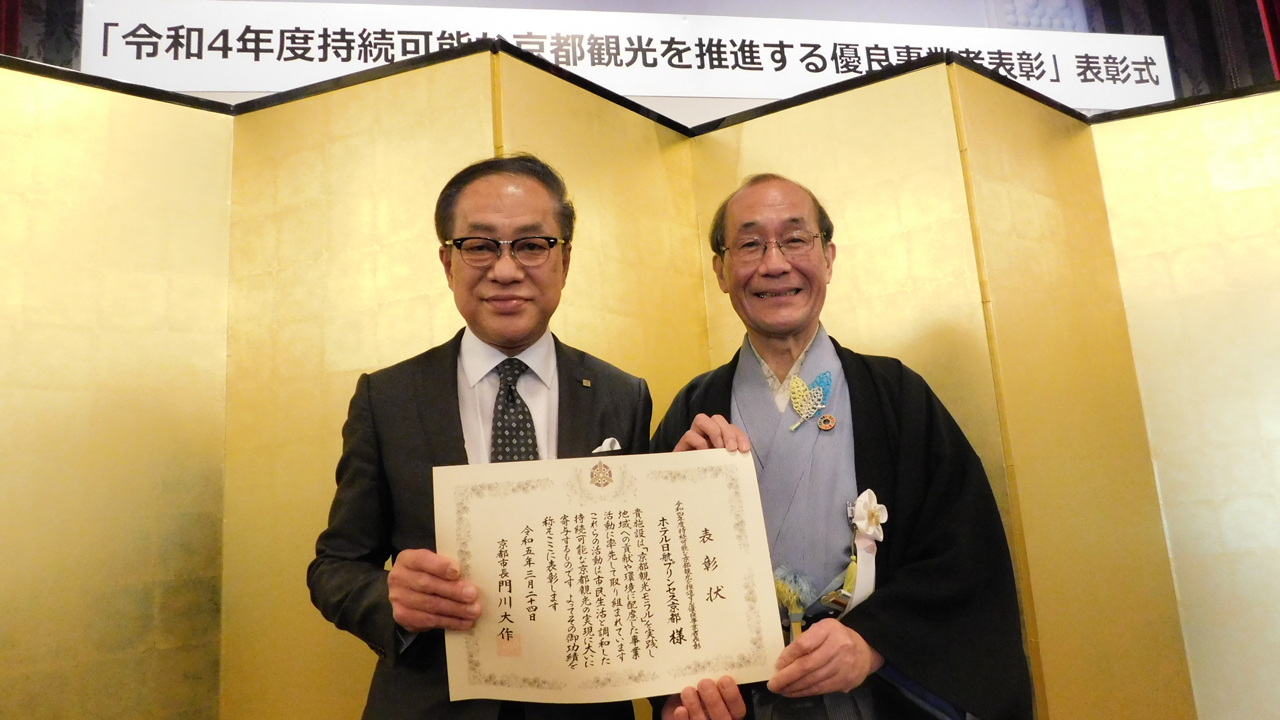 「令和4年度持続可能な京都観光を推進する優良事業者表彰」表彰式
表彰状
令和四年度持続可能な京都観光を推進する優良事業者表彰
ホテル日航プリンセス京都 様
貴施設は「京都観光モラル」を実践し
地域への貢献や環境に配慮した事業
活動に率先して取り組まれています
これらの活動は市民生活と調和した
持続可能な京都観光の実現に大いに
寄与するものです よってその御功績を
称えここに表彰します
令和五年三月二十四日
京都市長 門川大作